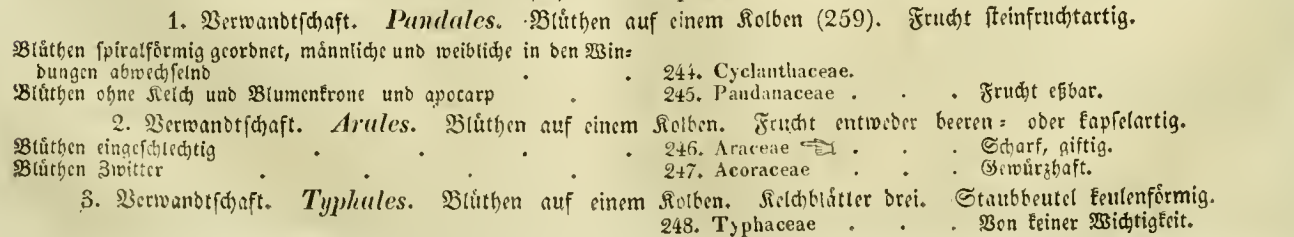 1. Verwandtschaft. Pandales. Blüthen auf einem Kolben (259). Frucht steinfruchtartig.
Blüthen spiralförmig geordnet, männliche und weibliche in den Win-
dungen abwechselnd . . 244. Cyclanthaceae.
Blüthen ohne Kelch und Blumenkrone und apocarp . 245. Pandanaceae . . . Frucht eßbar.
2. Verwandtschaft. Arales. Blüthen auf einem Kolben. Frucht entweder beeren- oder kapselartig.
Blüthen eingeschlechtig . . . . 246. Araceae ☜ . . . Scharf, giftig.
Blüthen Zwitter . . . . . 247. Acoraceae . . . Gewürzhaft.
3. Verwandtschaft. Typhales. Blüthen auf einem Kolben. Kelchblätter drei. Staubbeutel keulenförmig.
248. Typhaceae . . . Von keiner Wichtigkeit.